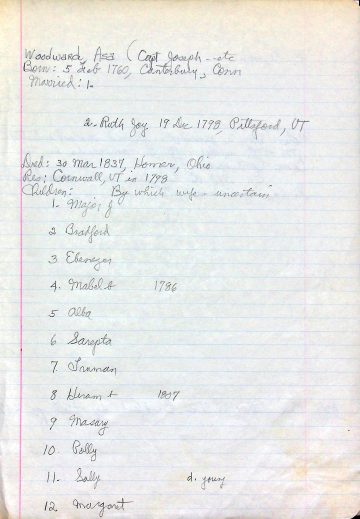 Woodward, Asa (Capt Joseph - etc
Born: 5 Feb 1760, Canterbury, Conn
Married: 1-
2. Ruth Joy 19 Dec 1798, Pittsford, VT
Died: 30 Mar 1837, Homer, Ohio
Res: Cornwall, VT in 1798
Children: By which wife - uncertain
1. Major J
2 Bradford
3 Ebenezer
4. Mabel 1786
5 Alba
6 Sarepta
7. Truman
8 Hiram
9 Massay
10. Polly
11. Sally d. young
12. Margaret